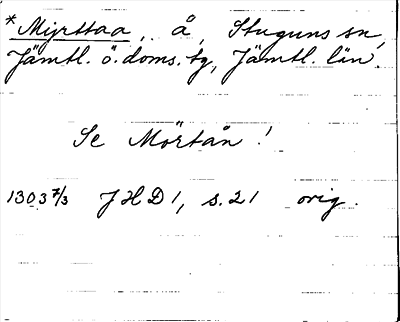 *Mijrttaa, å, Stuguns sn,
Jämtl. ö. doms. tg, Jämtl. län.
Se Mörtån!
1303 7/3 JHD 1, s. 21 orig.